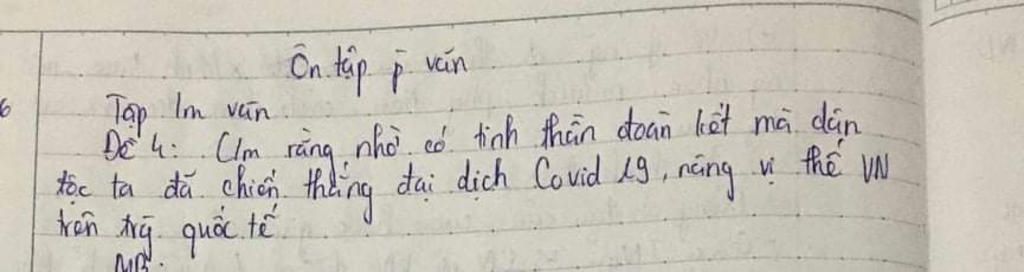 Ôn tập p̄ văn
Tập lm văn
Đề 4: C/m rằng, nhờ có tinh thần đoàn kết mà dân
tộc ta đã chiến thắng đại dịch Covid 19, nâng vị thế VN
trên trg quốc tế
MB.